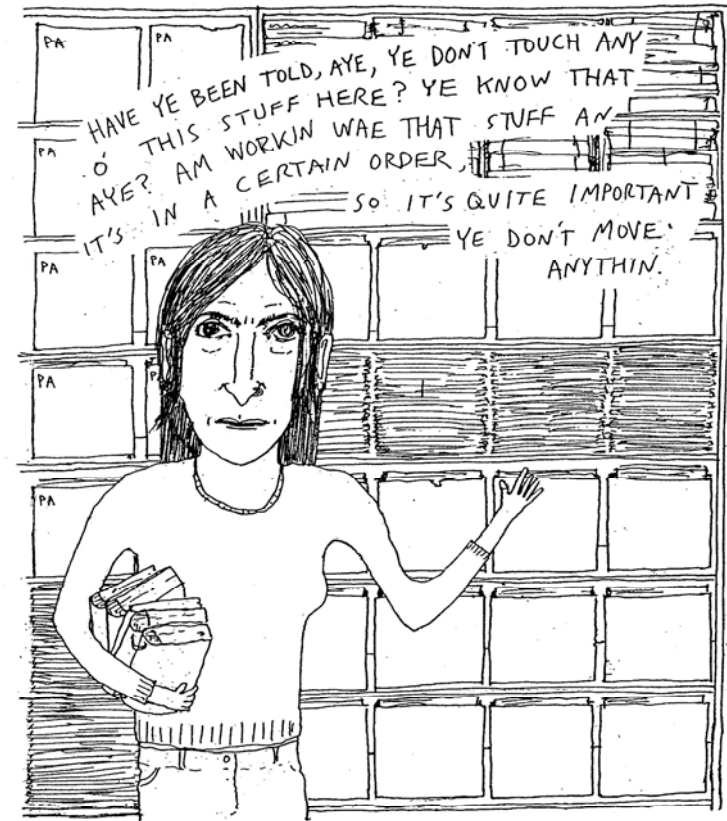 PA
PA
HAVE YE BEEN TOLD, AYE, YE DON'T TOUCH ANY
O' THIS STUFF HERE? YE KNOW THAT
AYE? AM WORKIN WAE THAT STUFF AN
IT'S IN A CERTAIN ORDER,
SO IT'S QUITE IMPORTANT
YE DON'T MOVE
ANYTHIN.
PA
PA
PA
PA
PA